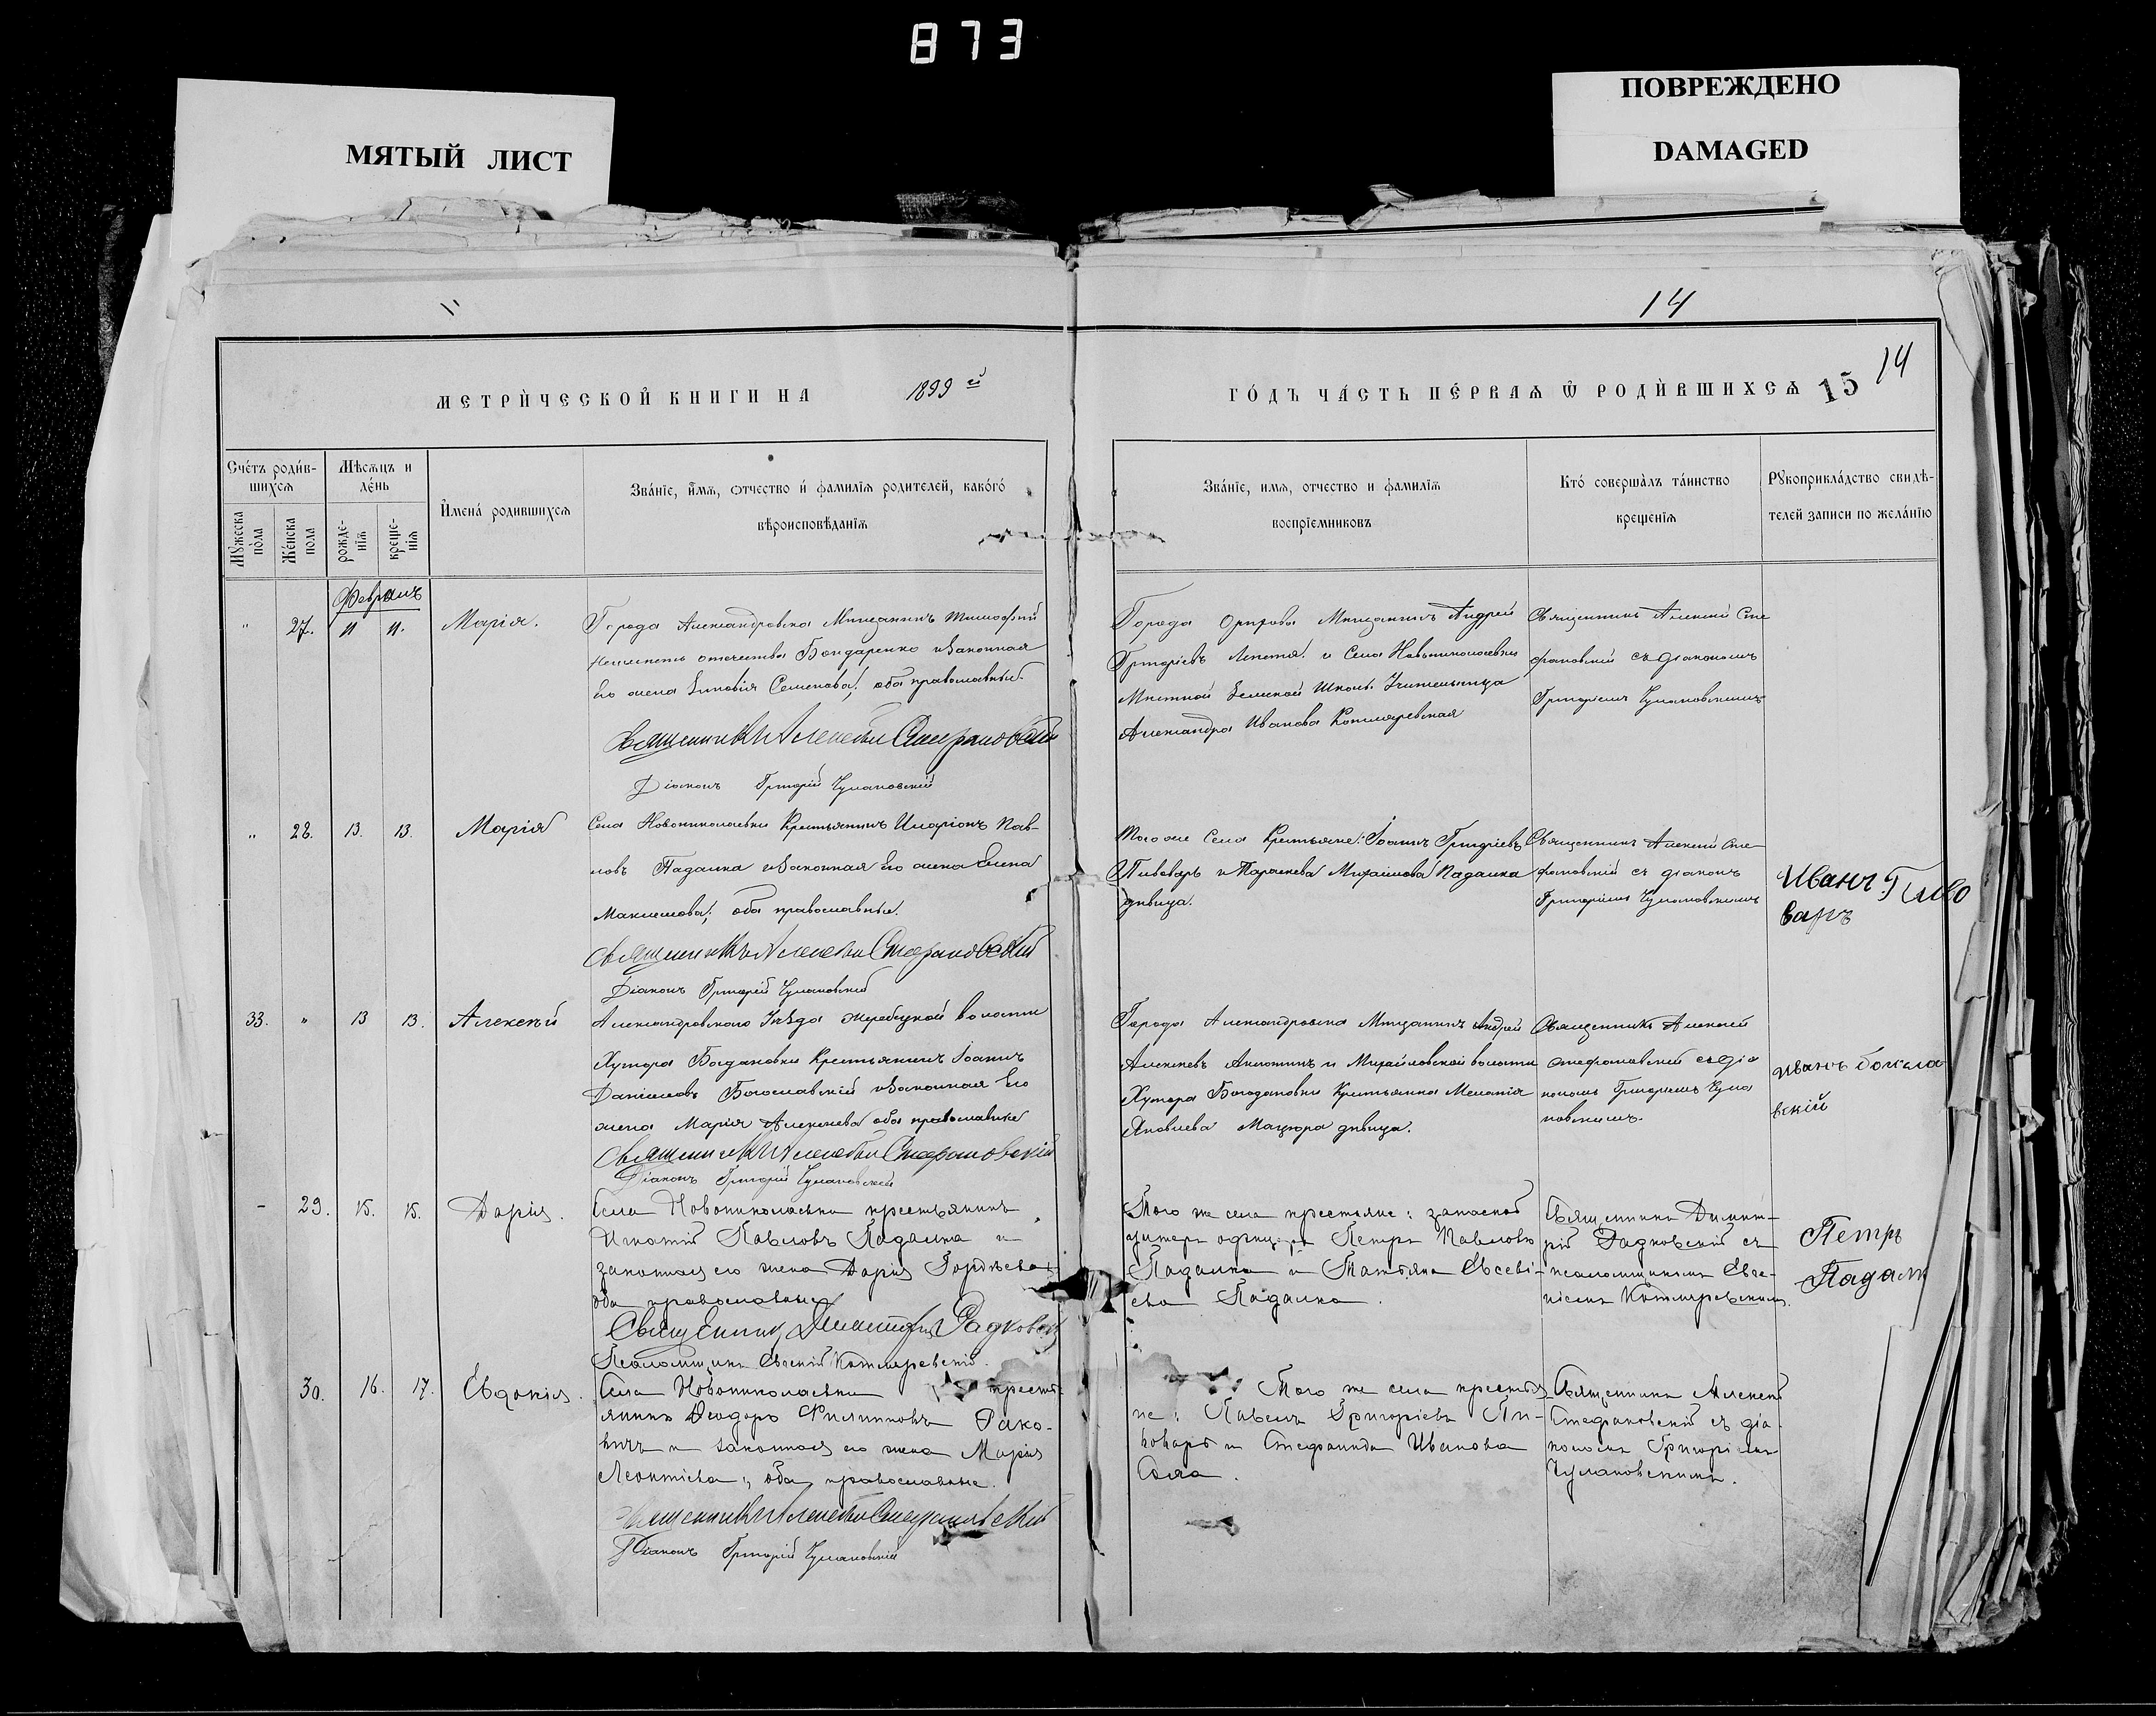 873
МЯТЫЙ ЛИСТ
ПОВРЕЖДЕНО
DAMAGED
14
14
15
МЕТРИ́ЧЕСКОЙ КНИГИ НА 1899 й
ГО́ДЪ ЧА́СТЬ ПЕ́РВАѦ Ѿ РОДИ́ВШИХСѦ
Сче́тъ роди́в-
шихсѧ
Мѣсѧцъ и
де́нь
Мꙋжеска
по́ла
Же́нска
пола
рожде-
нїѧ
креще-
нїѧ
И҆мена́ родившихсѧ
Зва́нїе, и҆мѧ, ѻтчество и҆ фамилїѧ родителей, како́го́
вѣроисповѣданїѧ
Зва́нїе, имѧ, отчество и фамилїѧ
воспрїемниковъ
Кто́ соверша̀лъ та́инство
крещенїѧ
Рꙋкоприкла́дство свидѣ-
телей записи по жела́нїю
Февраль
" 27. 11 11. Марія.
Города Александровска Мищанинъ Тимофей
отечества Бондаренко и Законная
Его жена Зиновія Семенова; оба православные.
Священникъ Алексей Стефановский
Діаконъ Григорій Чулановскій
Города Орехова Мищанинъ Андрей
Григоріевъ и Села Новониколаевки
Земской Школы Учительница
Александра Иванова Котляревская
Священникъ Алексей Сте
фановскій съ діакономъ
Григоріемъ Чулановскимъ
" 28. 13. 13. Марія
Села Новониколаевки Крестьянинъ Иларіонъ Пав-
ловъ Падалка и Законная Его жена Елена
Максимова; оба православные.
Священникъ Алексей Стефановский
Діаконъ Григорій Чулановскій
Того же Села Крестьяне: Іоаннъ Григоріевъ
Пивоваръ и Параскева Михайлова Падалка
дѣвица.
Священникъ Алексей Сте
фановскій съ діаконъ
Григоріемъ Чулановскимъ
Иванъ Пиво
варъ
33. " 13 13. Алексѣй
Александровского Уѣзда Жеребецкой волости
Хутора Богдановки Крестьянинъ Іоаннъ
Даніиловъ Богославскій и Законная Его
жена Марія Алексеева оба православные
Священникъ Алексей Стефановскій
Діаконъ Григорій Чулановскій
Города Александровска Мищанинъ Андрей
Алексеевъ и Михайловской волости
Хутора Богодановки Крестьянка Меланія
Яковлева Мацюра дѣвица.
Священникъ Алексей
Стефановскій съ діа
кономъ Григоріемъ Чула
новскимъ.
Иванъ
вскій
- 29. 15. 15. Дарія.
Села Новониколаевки крестьянинъ
Игнатій Павловъ Падалка и
законная его жена Дарія Гордѣева
оба православные
Священникъ Димитрій Радковскій
Псаломщикъ Евгеній Котляревскій.
Того же села крестьяне: запасной
унтеръ офицеръ Петръ Павловъ
Падалка и Татьяна Евсеві-
ева Падалка.
Священникъ Димит-
рій Радковскій съ
псаломщикомъ Евге-
ніемъ Котляревскимъ.
Петръ
Падалк
30. 16. 17. Евдокія.
Села Новониколаевки кресть-
янинъ Ѳеодоръ Филипповъ Рако-
вичъ и законная его жена Марія
Леонтіева; оба православные.
Священникъ Алексей Стефановский
Діаконъ Григорій Чулановскій
Того же села крестья
не: Павелъ Григоріевъ Пи-
воваръ и Стефанида Иванова
Священникъ Алексей
Стефановскій съ діа-
кономъ Григоріемъ
Чулановскимъ.